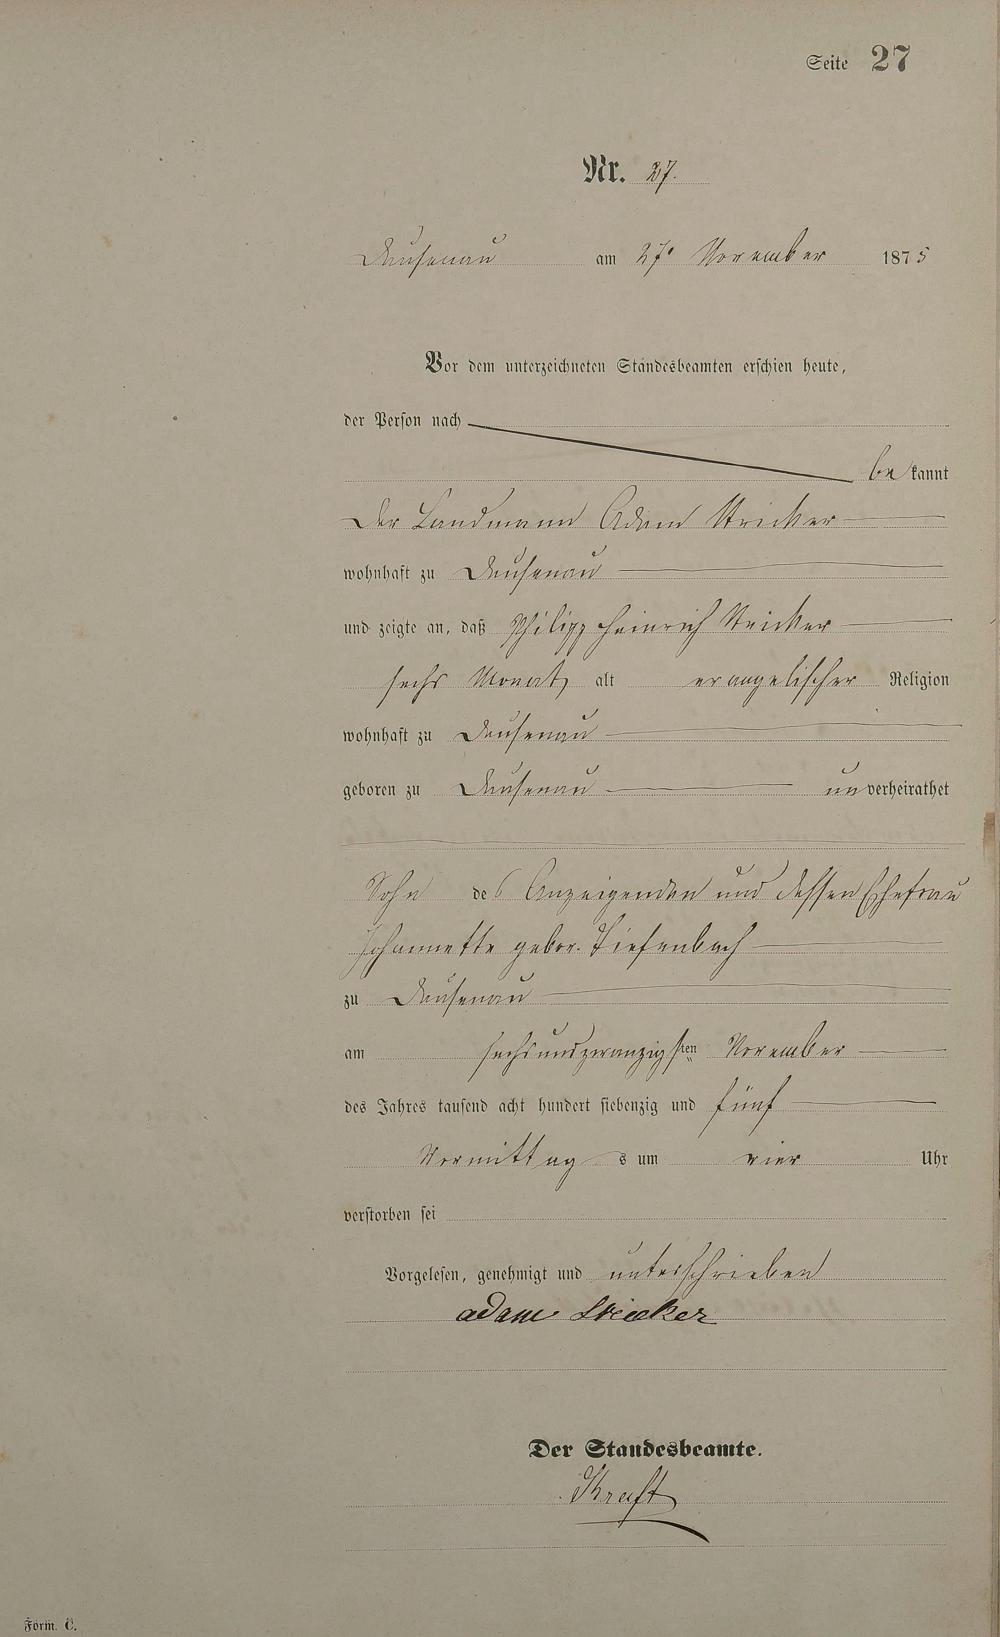 Seite 27
Nr. 27.
Dausenau am 27. November 1875
Vor dem unterzeichneten Standesbeamten erschien heute,
der Person nach
bekannt
der Landmann Adam Stricker
wohnhaft zu Dausenau
und zeigte an, daß Philipp Heinrich Stricker
sechs Monat alt evangelischer Religion
wohnhaft zu Dausenau
geboren zu Dausenau unverheirathet
Sohn des Anzeigenden und dessen Ehefrau
Johannette gebor. Tiefenbach
zu Dausenau
am sechsundzwanzigsten November
des Jahres tausend acht hundert siebenzig und fünf
Vormittags um vier Uhr
verstorben sei
Vorgelesen, genehmigt und unterschrieben
Adam Stricker
Der Standesbeamte.
Kraft
Form. C.